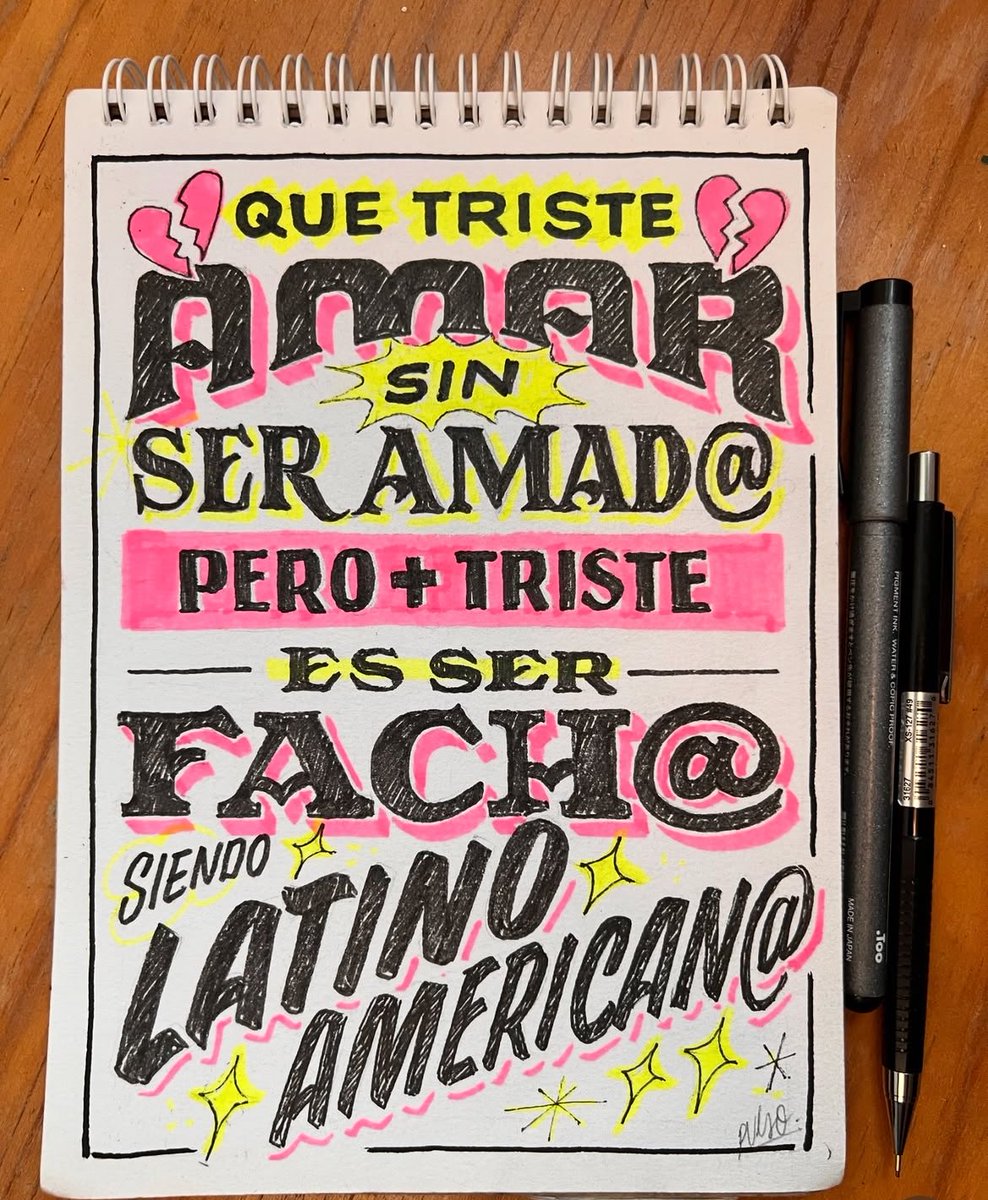 QUE TRISTE
AMAR
SIN
SER AMAD@
PERO + TRISTE
ES SER
FACH@
SIENDO
LATINO
AMERICAN@
PIGMENT INK. WATER & COPIC PROOF.
MADE IN JAPAN
.Too